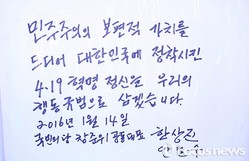 민주주의의 보편적 가치를
드디어 대한민국에 정착시킨
4.19 혁명 정신을 우리의
행동규범으로 삼겠습니다.
2016년 1월 14일
국민의당 창준위 공동대표 한상진